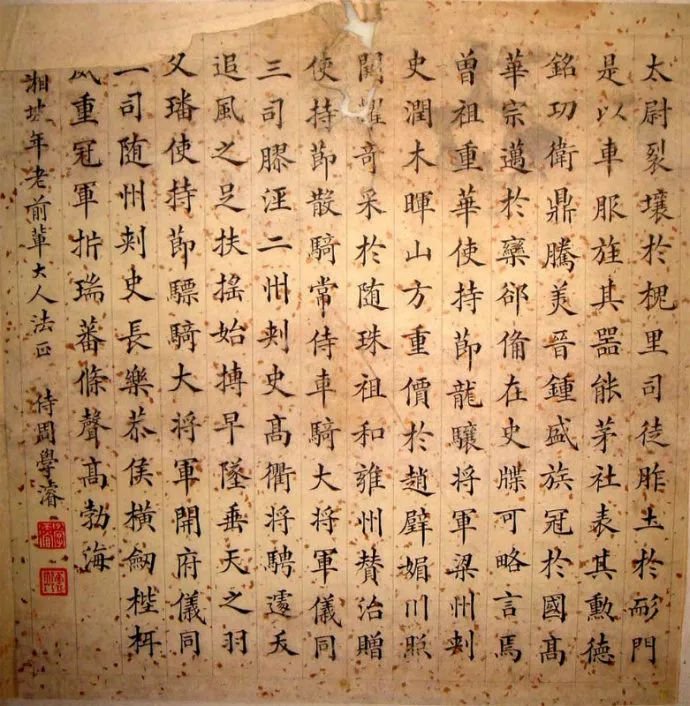 太尉裂壤於槐里司徒胙土於耏門
是以車服旌其器能茅社表其勳德
銘功衛鼎騰美晉鍾盛族冠於國高
華宗邁於欒郤俻在史牒可略言焉
曾祖重華使持節龍驤將軍梁州刾
史潤木暉山方重價於趙璧媚川照
闕耀奇采於随珠祖和雍州賛治贈
使持節散騎常侍車騎大將軍儀同
三司膠涇二州刾史高衢将騁遽夭
追風之足扶搖始摶早墜垂天之羽
父璠使持節驃騎大将軍開府儀同
三司随州刾史長樂恭侯橫劎梐枑
威重冠軍折瑞蕃條聲高勃海
湘坡年老前輩大人法正 侍周學濬